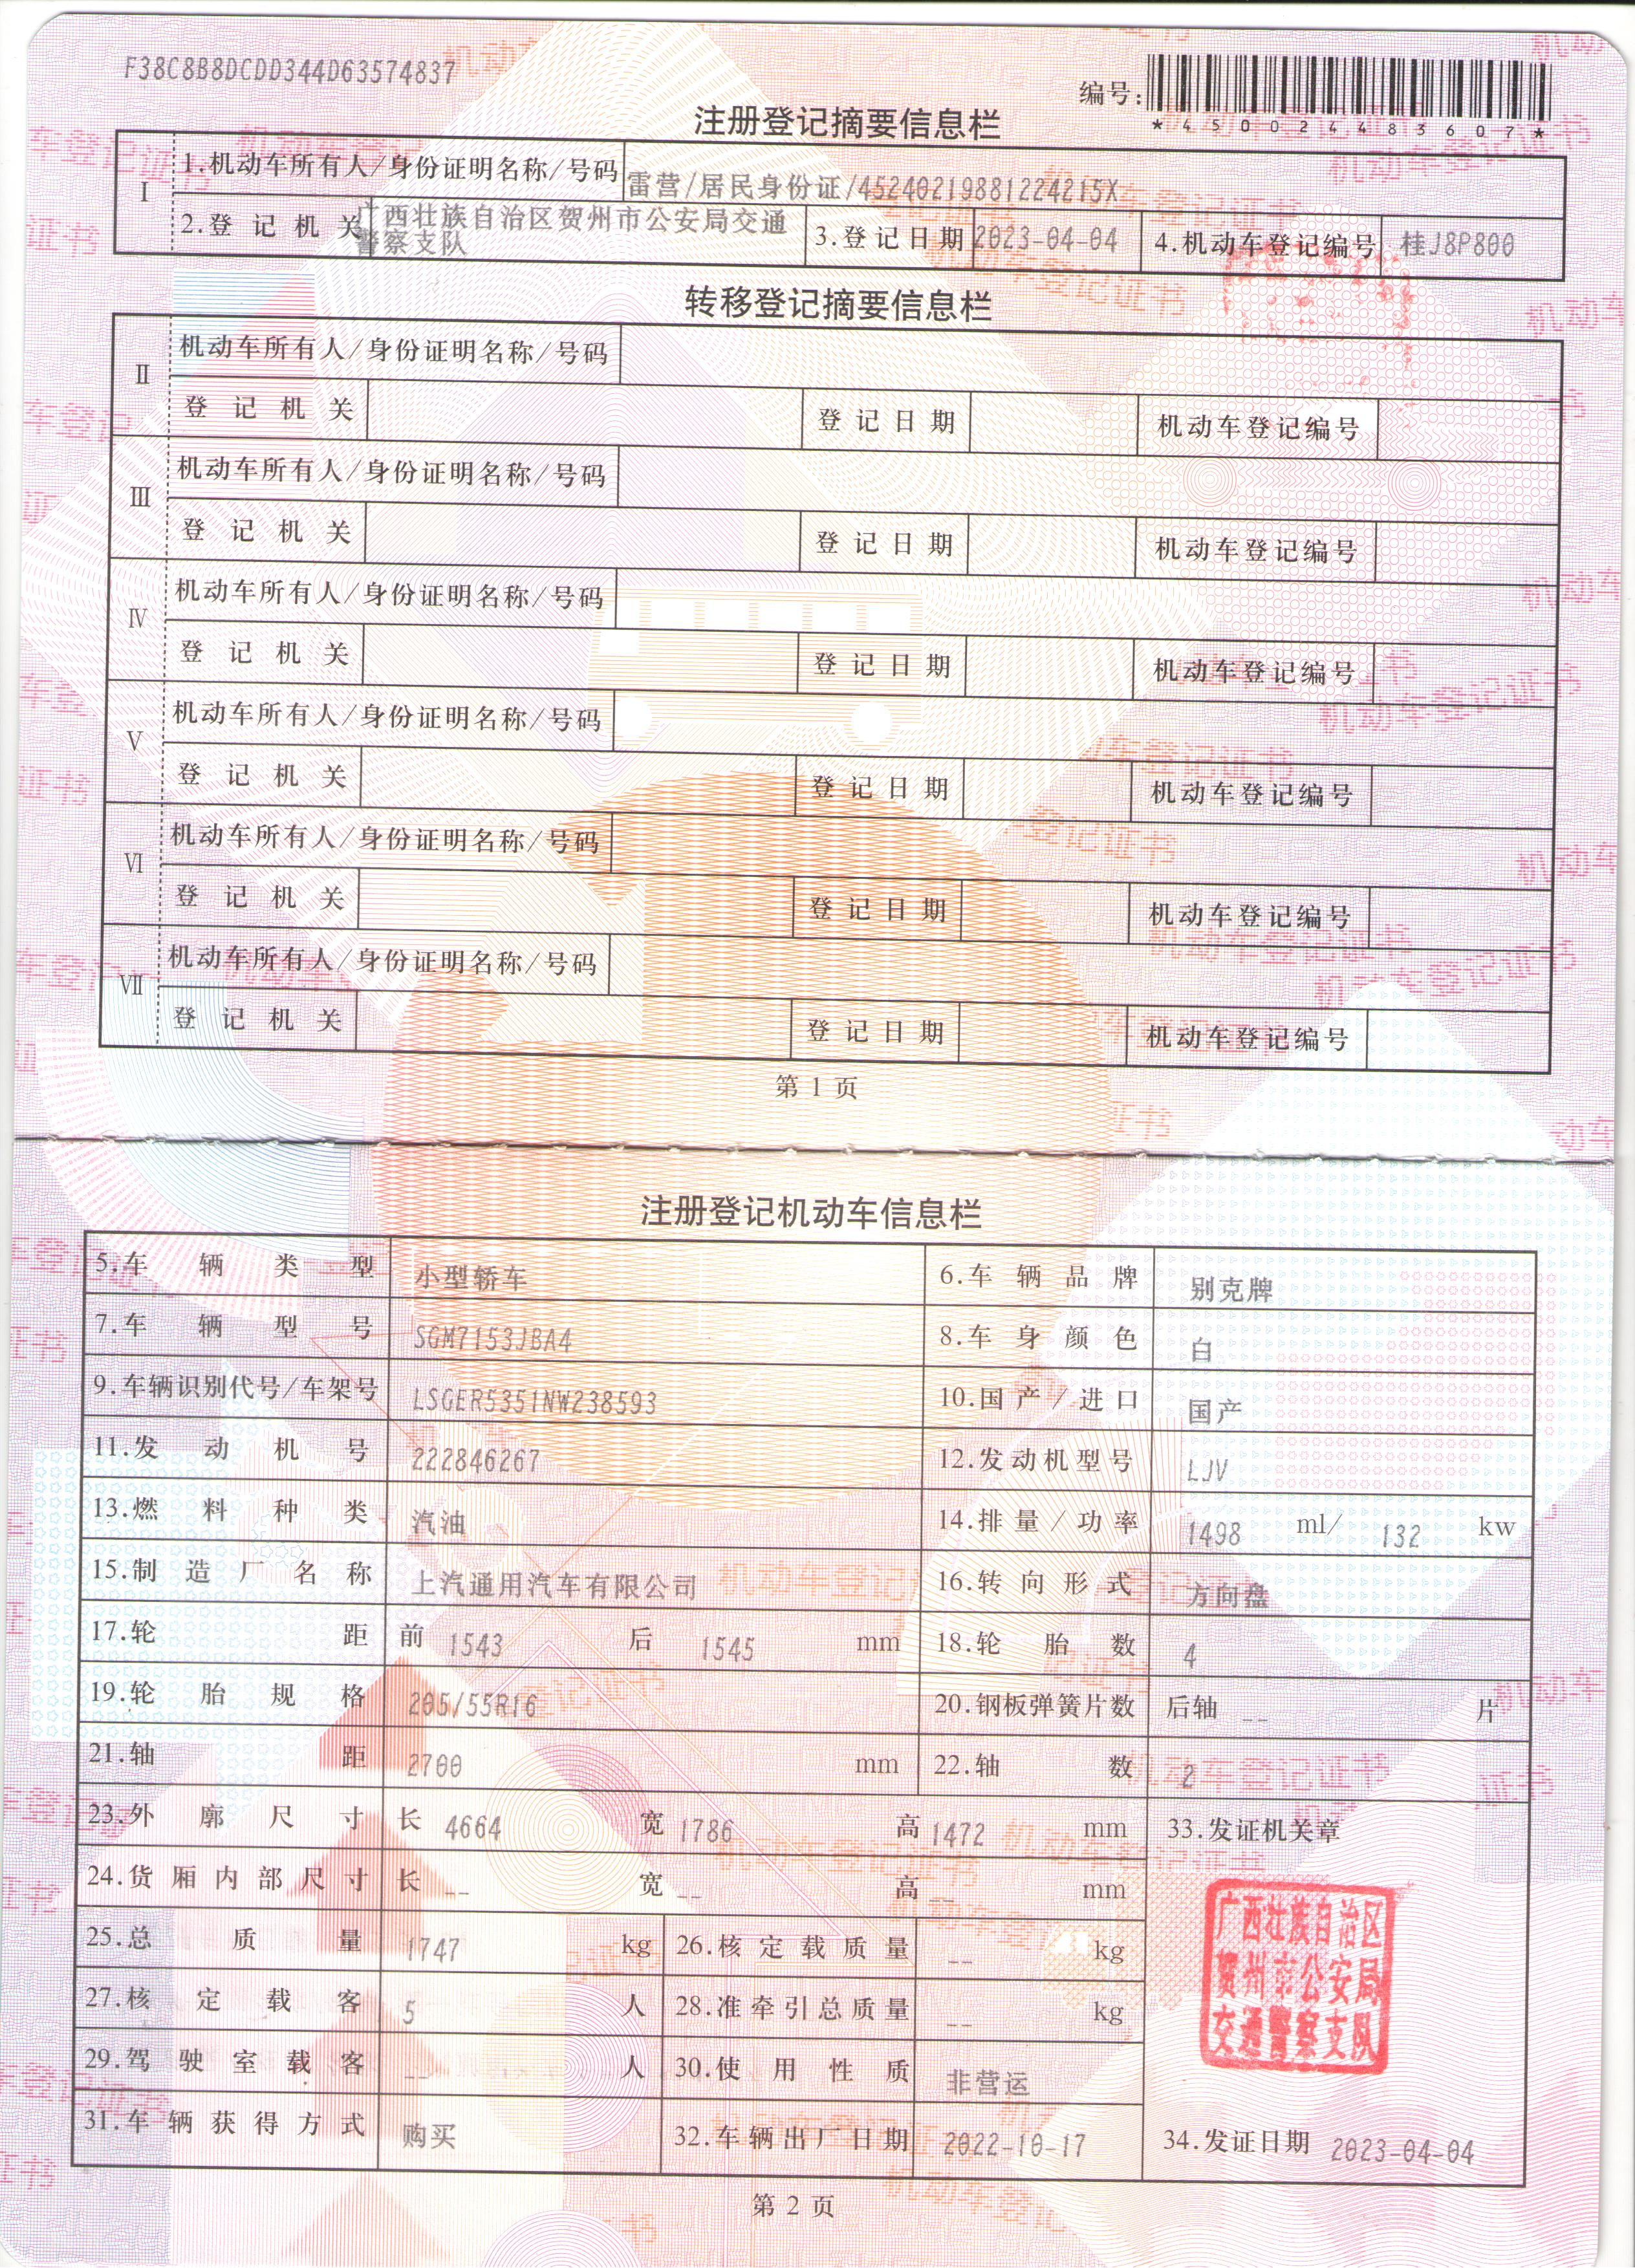 F38C8B8DCDD344D63574837
编号:
*450024483607*
注册登记摘要信息栏
I
1.机动车所有人/身份证明名称/号码 雷营/居民身份证/45240219881224215X
2.登记机关 广西壮族自治区贺州市公安局交通警察支队 3.登记日期 2023-04-04 4.机动车登记编号 桂J8P800
转移登记摘要信息栏
II
机动车所有人/身份证明名称/号码
登记机关 登记日期 机动车登记编号
III
机动车所有人/身份证明名称/号码
登记机关 登记日期 机动车登记编号
IV
机动车所有人/身份证明名称/号码
登记机关 登记日期 机动车登记编号
V
机动车所有人/身份证明名称/号码
登记机关 登记日期 机动车登记编号
VI
机动车所有人/身份证明名称/号码
登记机关 登记日期 机动车登记编号
VII
机动车所有人/身份证明名称/号码
登记机关 登记日期 机动车登记编号
第 1 页
注册登记机动车信息栏
5.车辆类型 小型轿车 6.车辆品牌 别克牌
7.车辆型号 SGM7153JBA4 8.车身颜色 白
9.车辆识别代号/车架号 LSGER5351NW238593 10.国产/进口 国产
11.发动机号 222846267 12.发动机型号 LJV
13.燃料种类 汽油 14.排量/功率 1498 ml/ 132 kw
15.制造厂名称 上汽通用汽车有限公司 16.转向形式 方向盘
17.轮距 前 1543 后 1545 mm 18.轮胎数 4
19.轮胎规格 205/55R16 20.钢板弹簧片数 后轴 -- 片
21.轴距 2700 mm 22.轴数 2
23.外廓尺寸 长 4664 宽 1786 高 1472 mm 33.发证机关章
24.货厢内部尺寸 长 -- 宽 -- 高 -- mm
25.总质量 1747 kg 26.核定载质量 -- kg
27.核定载客 5 人 28.准牵引总质量 -- kg
29.驾驶室载客 -- 人 30.使用性质 非营运
31.车辆获得方式 购买 32.车辆出厂日期 2022-10-17 34.发证日期 2023-04-04
广西壮族自治区
贺州市公安局
交通警察支队
第 2 页